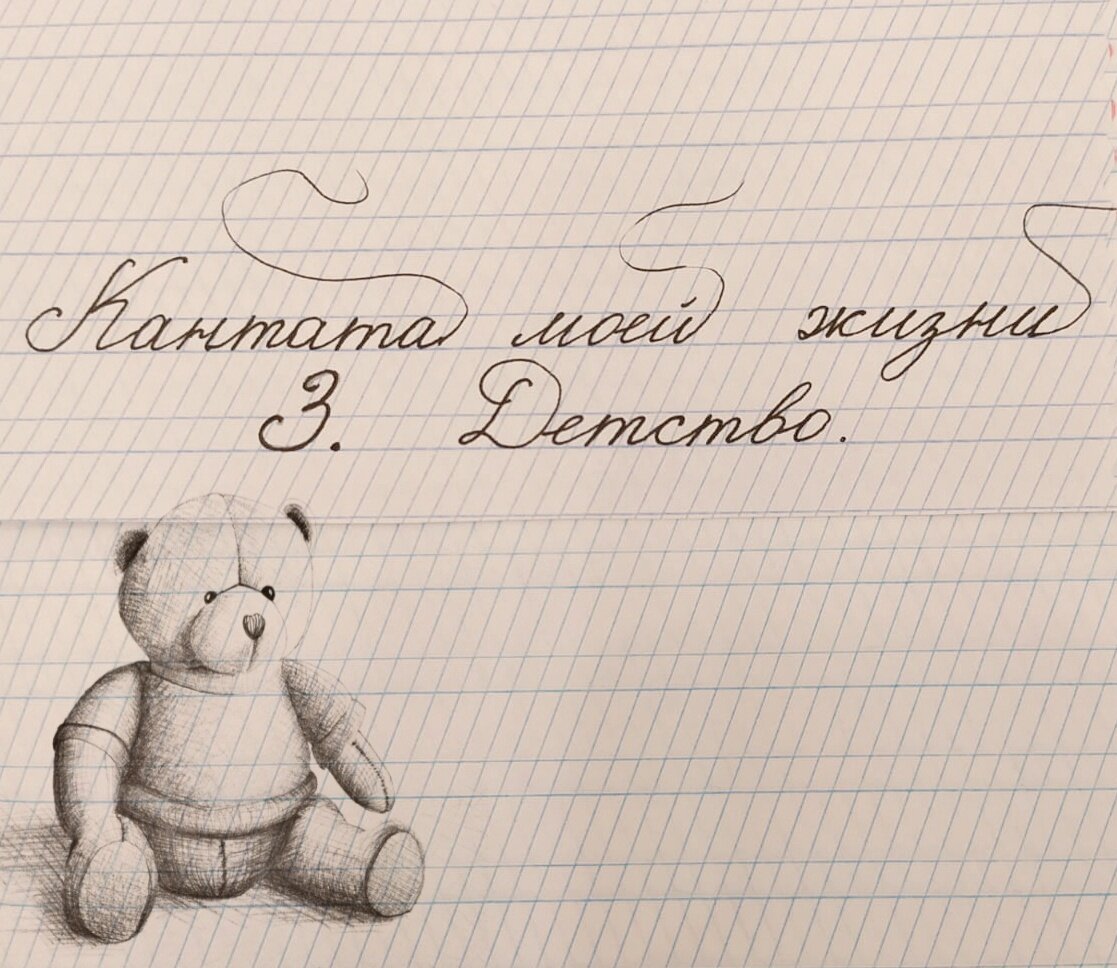 Кантата моей жизни
3. Детство.